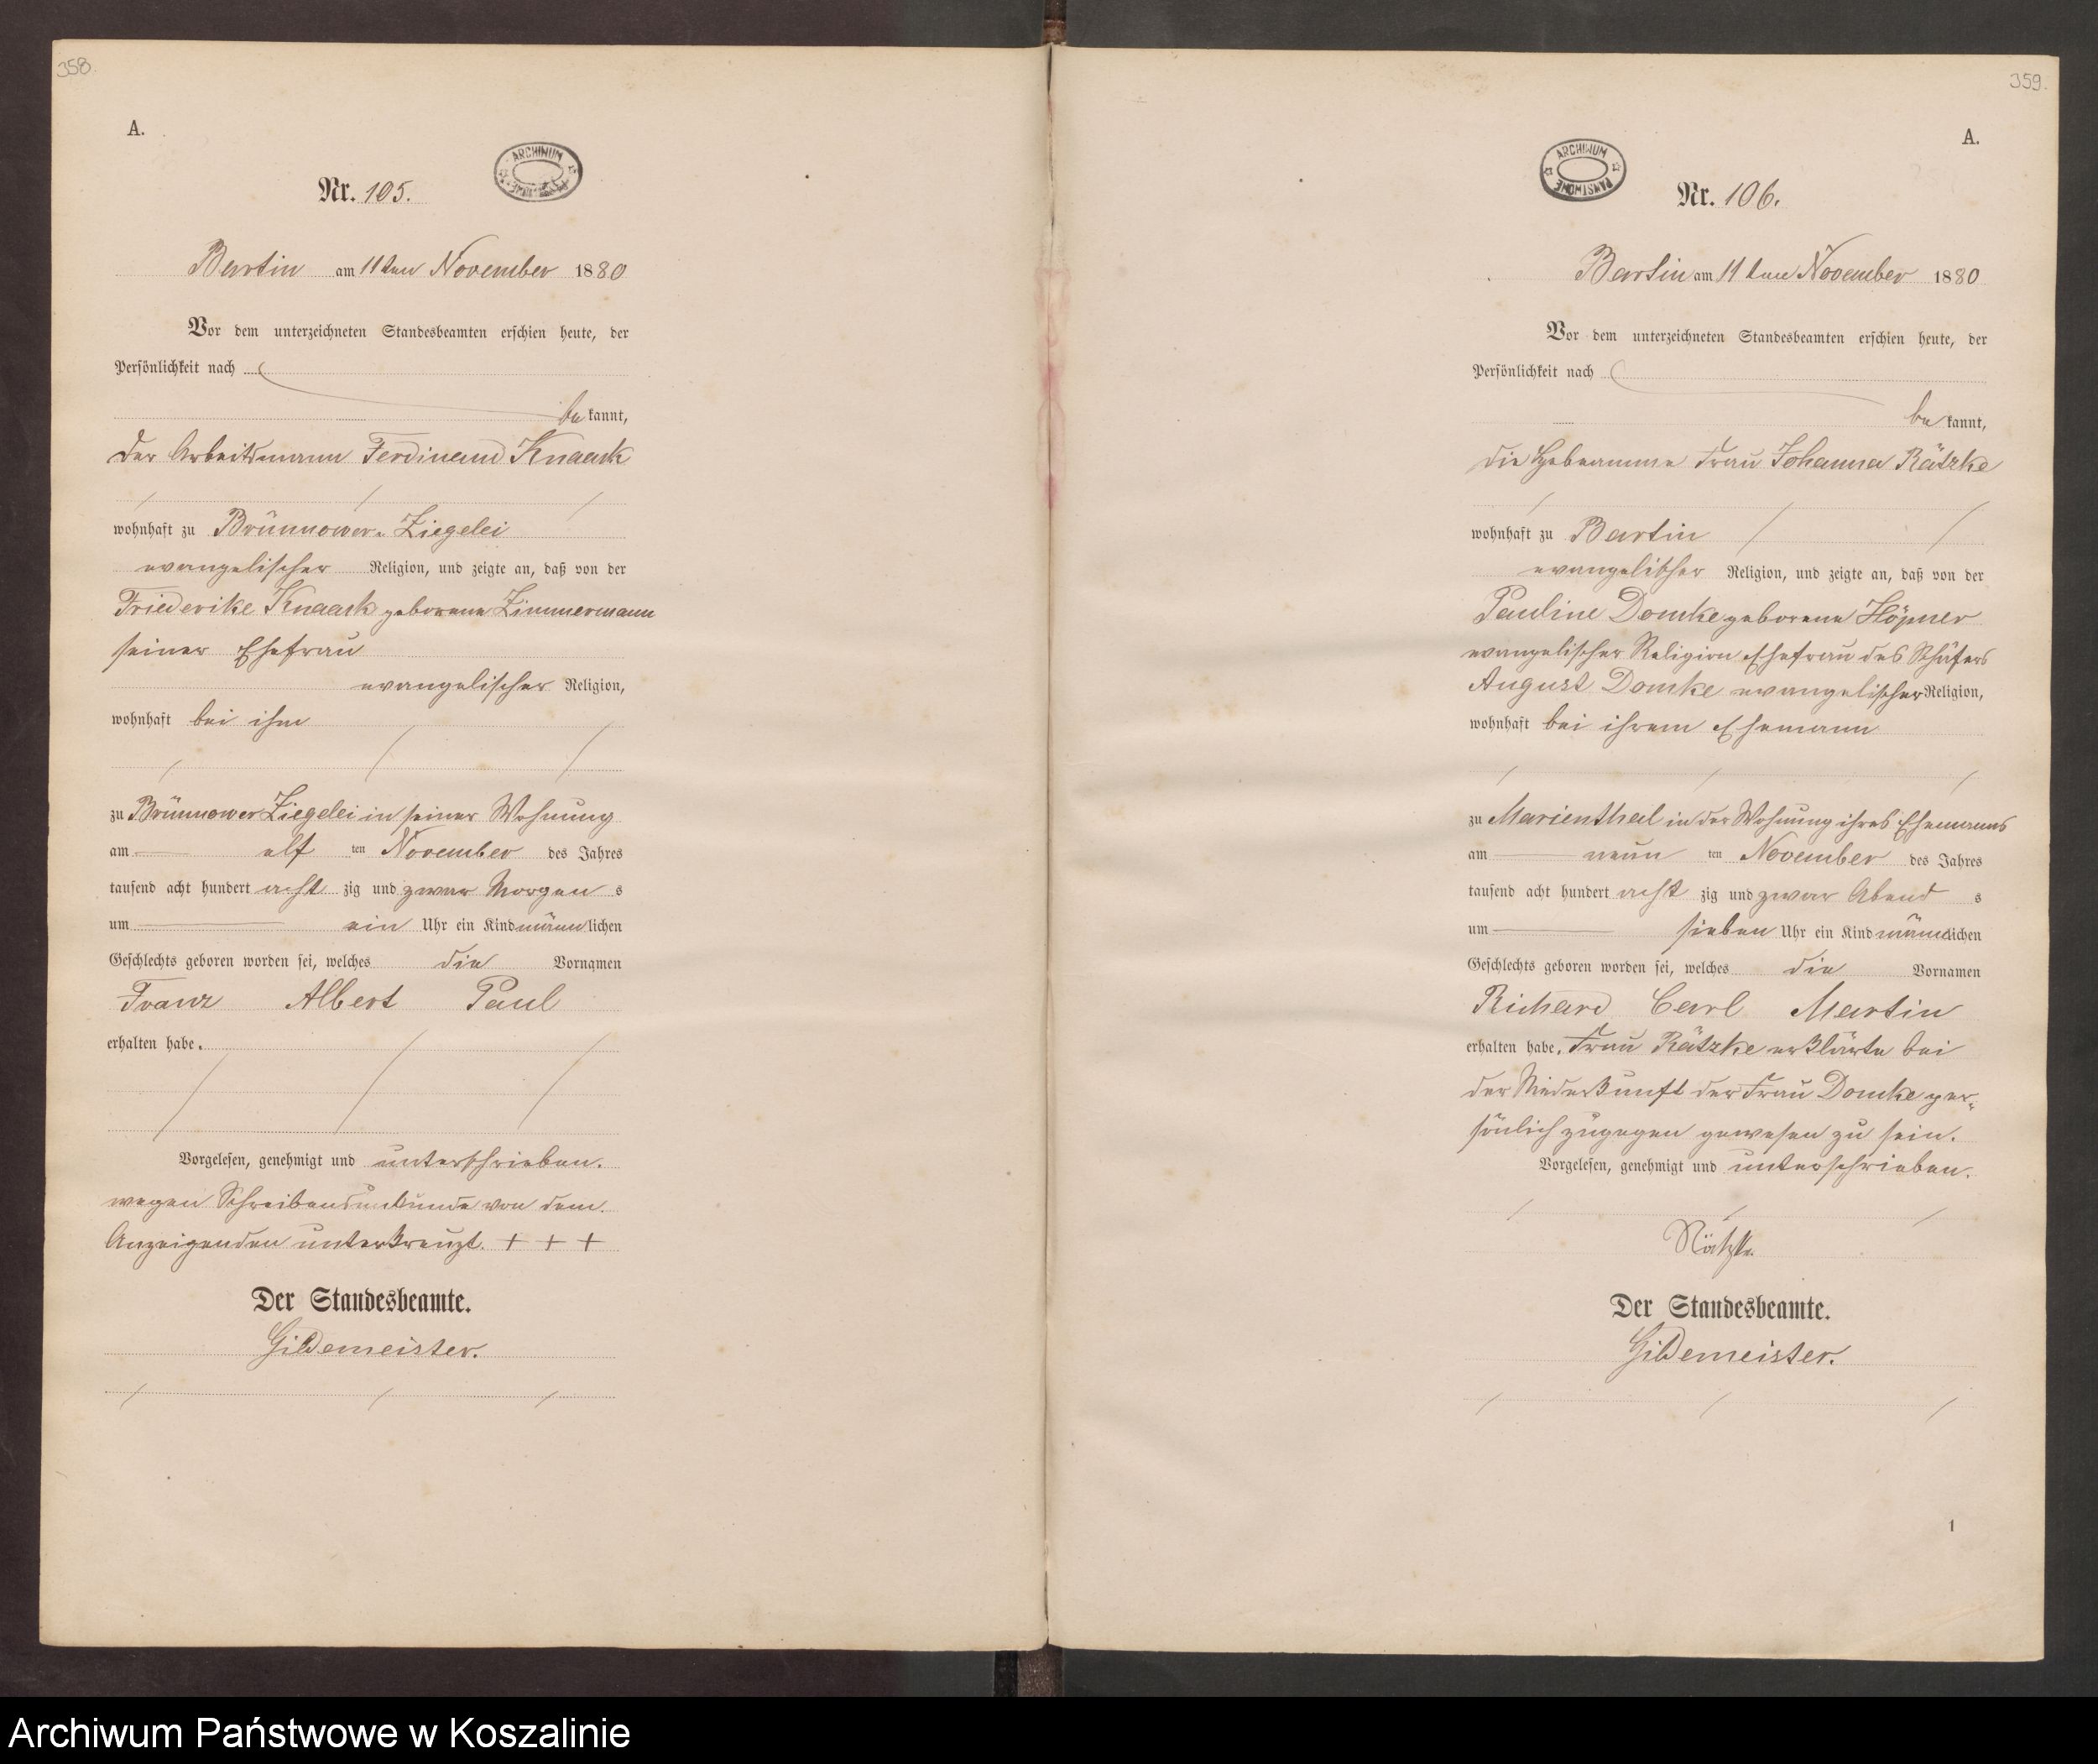 358.
A.
ARCHIWUM
Nr. 105.
Bartin am 11ten November 1880
Vor dem unterzeichneten Standesbeamten erschien heute, der
Persönlichkeit nach
bekannt,
der Arbeitsmann Ferdinand Knaack
wohnhaft zu Brünnower-Ziegelei
evangelischer Religion, und zeigte an, daß von der
Friederike Knaack geborene Zimmermann
seiner Ehefrau
evangelischer Religion,
wohnhaft bei ihm
zu Brünnower Ziegelei in seiner Wohnung
am elf ten November des Jahres
tausend acht hundert acht zig und zwar Morgen s
um ein Uhr ein Kind männlichen
Geschlechts geboren worden sei, welches die Vornamen
Franz Albert Paul
erhalten habe.
Vorgelesen, genehmigt und unterschrieben.
wegen Schreibensunkunde von dem
Anzeigenden unterkreuzt. + + +
Der Standesbeamte.
Gildemeister.
359.
A.
ARCHIWUM PAŃSTWOWE
Nr. 106.
Bartin am 11ten November 1880
Vor dem unterzeichneten Standesbeamten erschien heute, der
Persönlichkeit nach
bekannt,
die Hebeamme Frau Johanna Rätzke
wohnhaft zu Bartin
evangelischer Religion, und zeigte an, daß von der
Pauline Domke geborene Höpner
evangelischer Religion Ehefrau des Schäfers
August Domke evangelischer Religion,
wohnhaft bei ihrem Ehemann
zu Marienthal in der Wohnung ihres Ehemanns
am neun ten November des Jahres
tausend acht hundert acht zig und zwar Abend s
um sieben Uhr ein Kind männlichen
Geschlechts geboren worden sei, welches die Vornamen
Richard Carl Martin
erhalten habe. Frau Rätzke erklärte bei
der Niederkunft der Frau Domke per-
sönlich zugegen gewesen zu sein.
Vorgelesen, genehmigt und unterschrieben.
Rätzke
Der Standesbeamte.
Gildemeister.
1
Archiwum Państwowe w Koszalinie